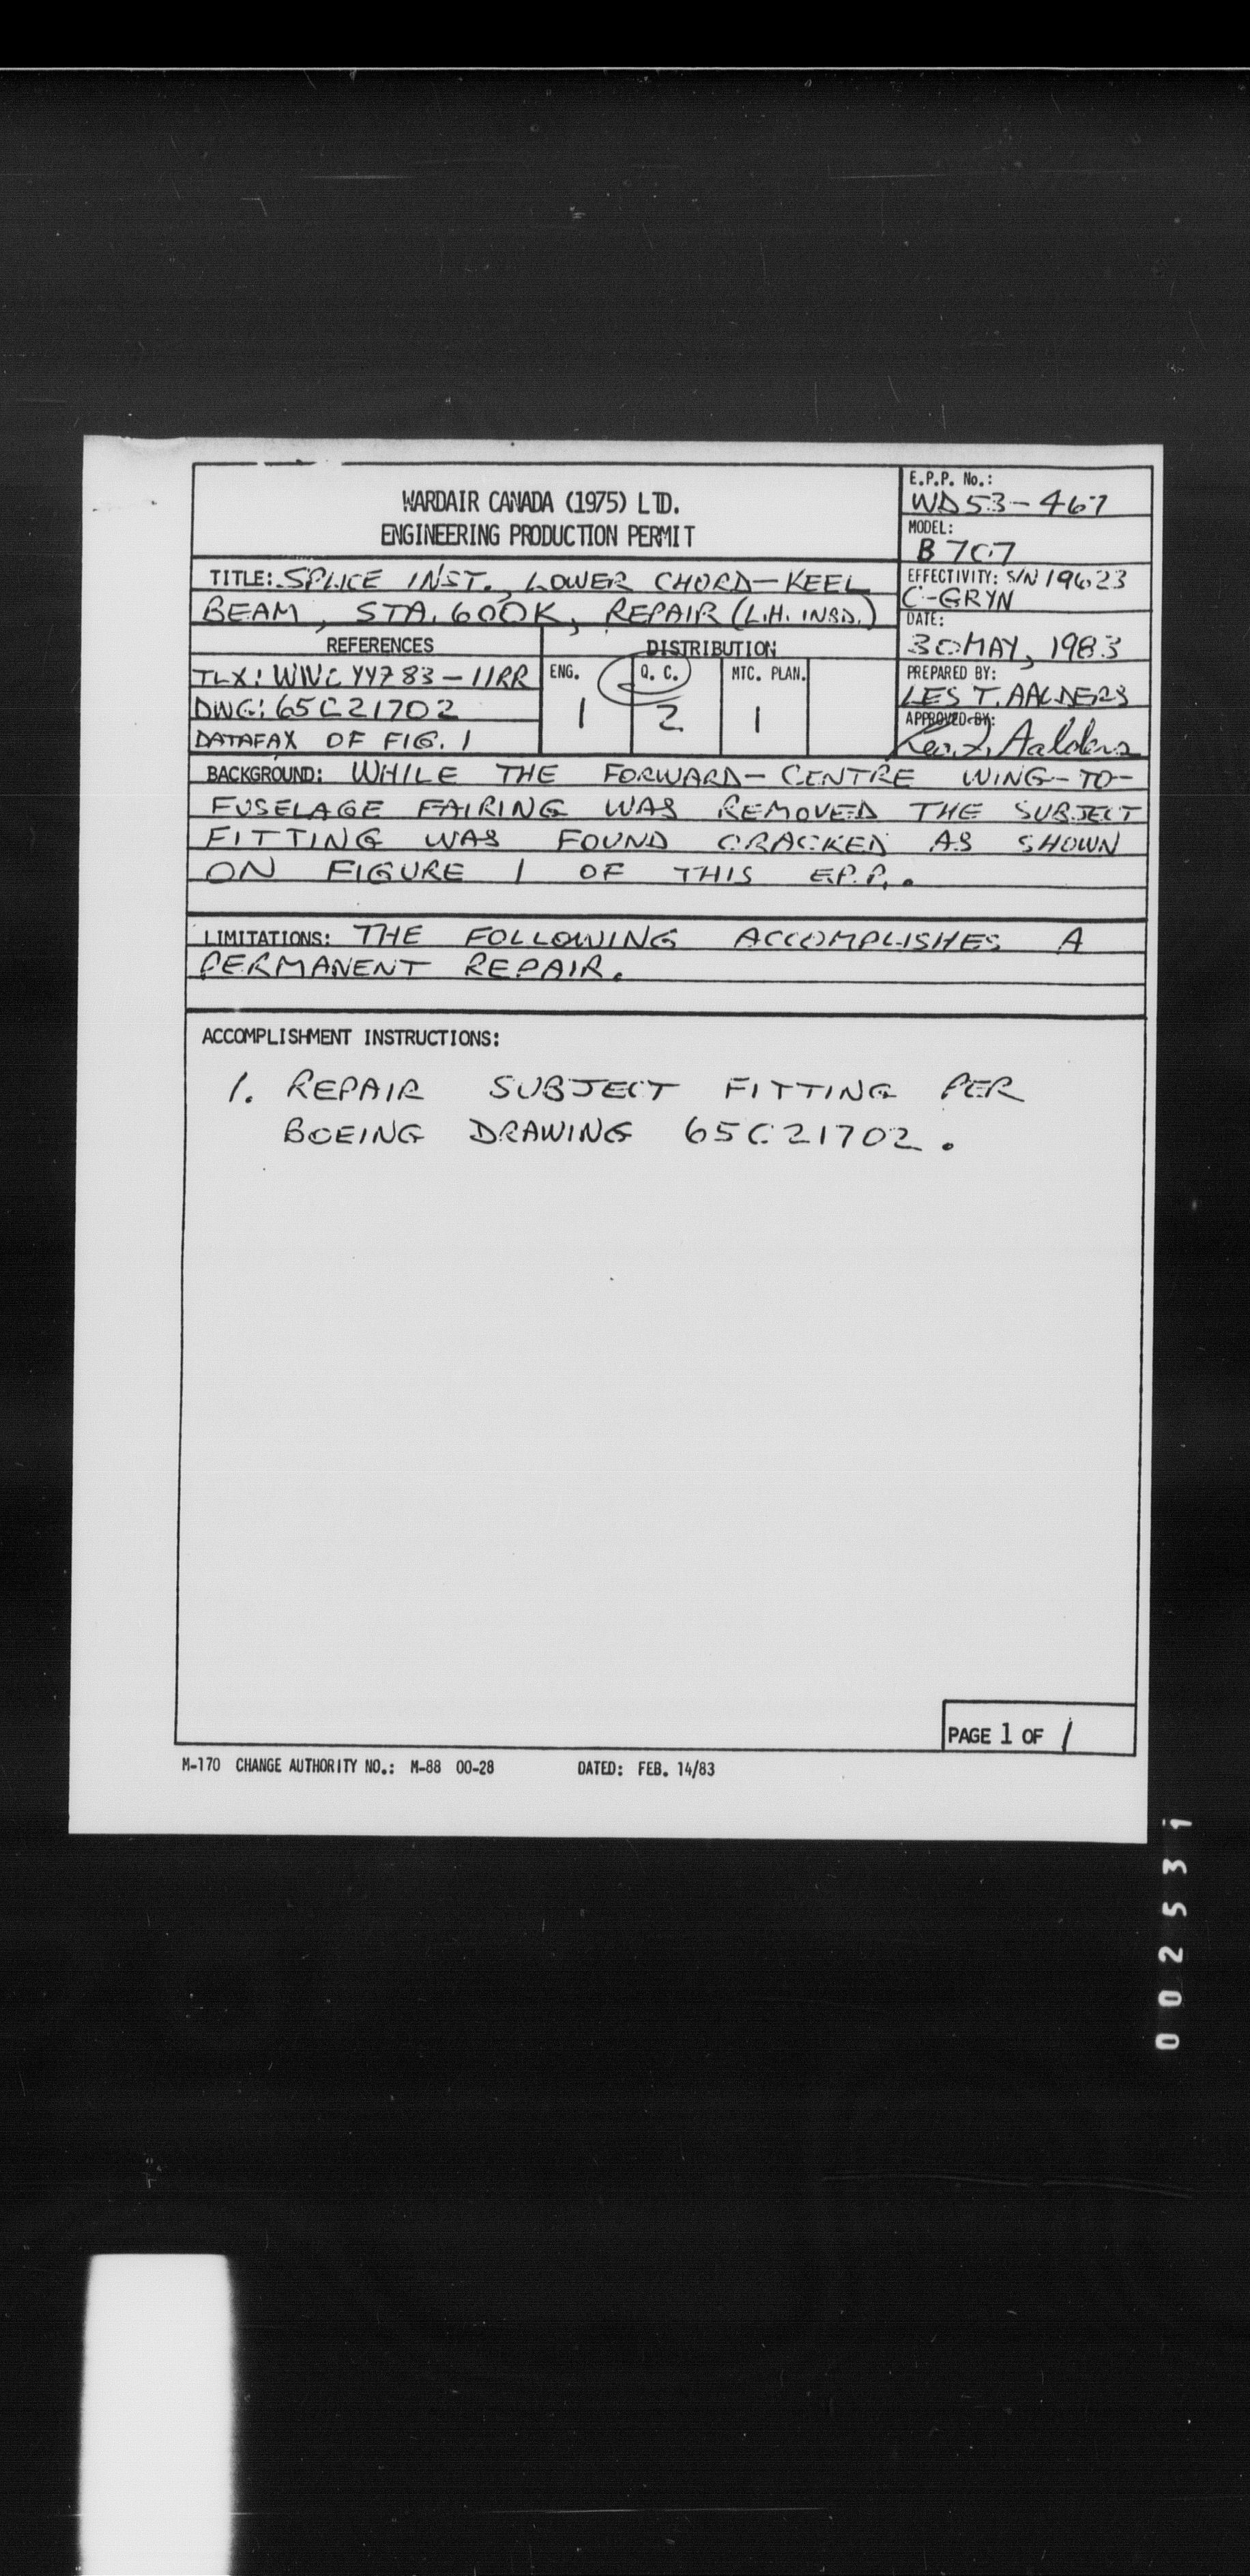 WARDAIR CANADA (1975) LTD.
ENGINEERING PRODUCTION PERMIT
E.P.P. No.:
WD53-467
MODEL:
B707
TITLE: SPLICE INST., LOWER CHORD-KEEL
BEAM, STA. 600K, REPAIR (L.H. INBD.)
EFFECTIVITY: S/N 19623
C-GRYN
DATE:
30 MAY, 1983
REFERENCES
TLX: WNC YYZ 83-11RR
DWG: 65C21702
DATAFAX OF FIG. 1
DISTRIBUTION
ENG. Q. C. MTC. PLAN.
1 2 1
PREPARED BY:
LES T. AALDERS
APPROVED BY:
Les T. Aalders
BACKGROUND: WHILE THE FORWARD-CENTRE WING-TO-
FUSELAGE FAIRING WAS REMOVED THE SUBJECT
FITTING WAS FOUND CRACKED AS SHOWN
ON FIGURE 1 OF THIS E.P.P..
LIMITATIONS: THE FOLLOWING ACCOMPLISHES A
PERMANENT REPAIR.
ACCOMPLISHMENT INSTRUCTIONS:
1. REPAIR SUBJECT FITTING PER
BOEING DRAWING 65C21702.
PAGE 1 OF 1
M-170 CHANGE AUTHORITY NO.: M-88 00-28 DATED: FEB. 14/83
002531